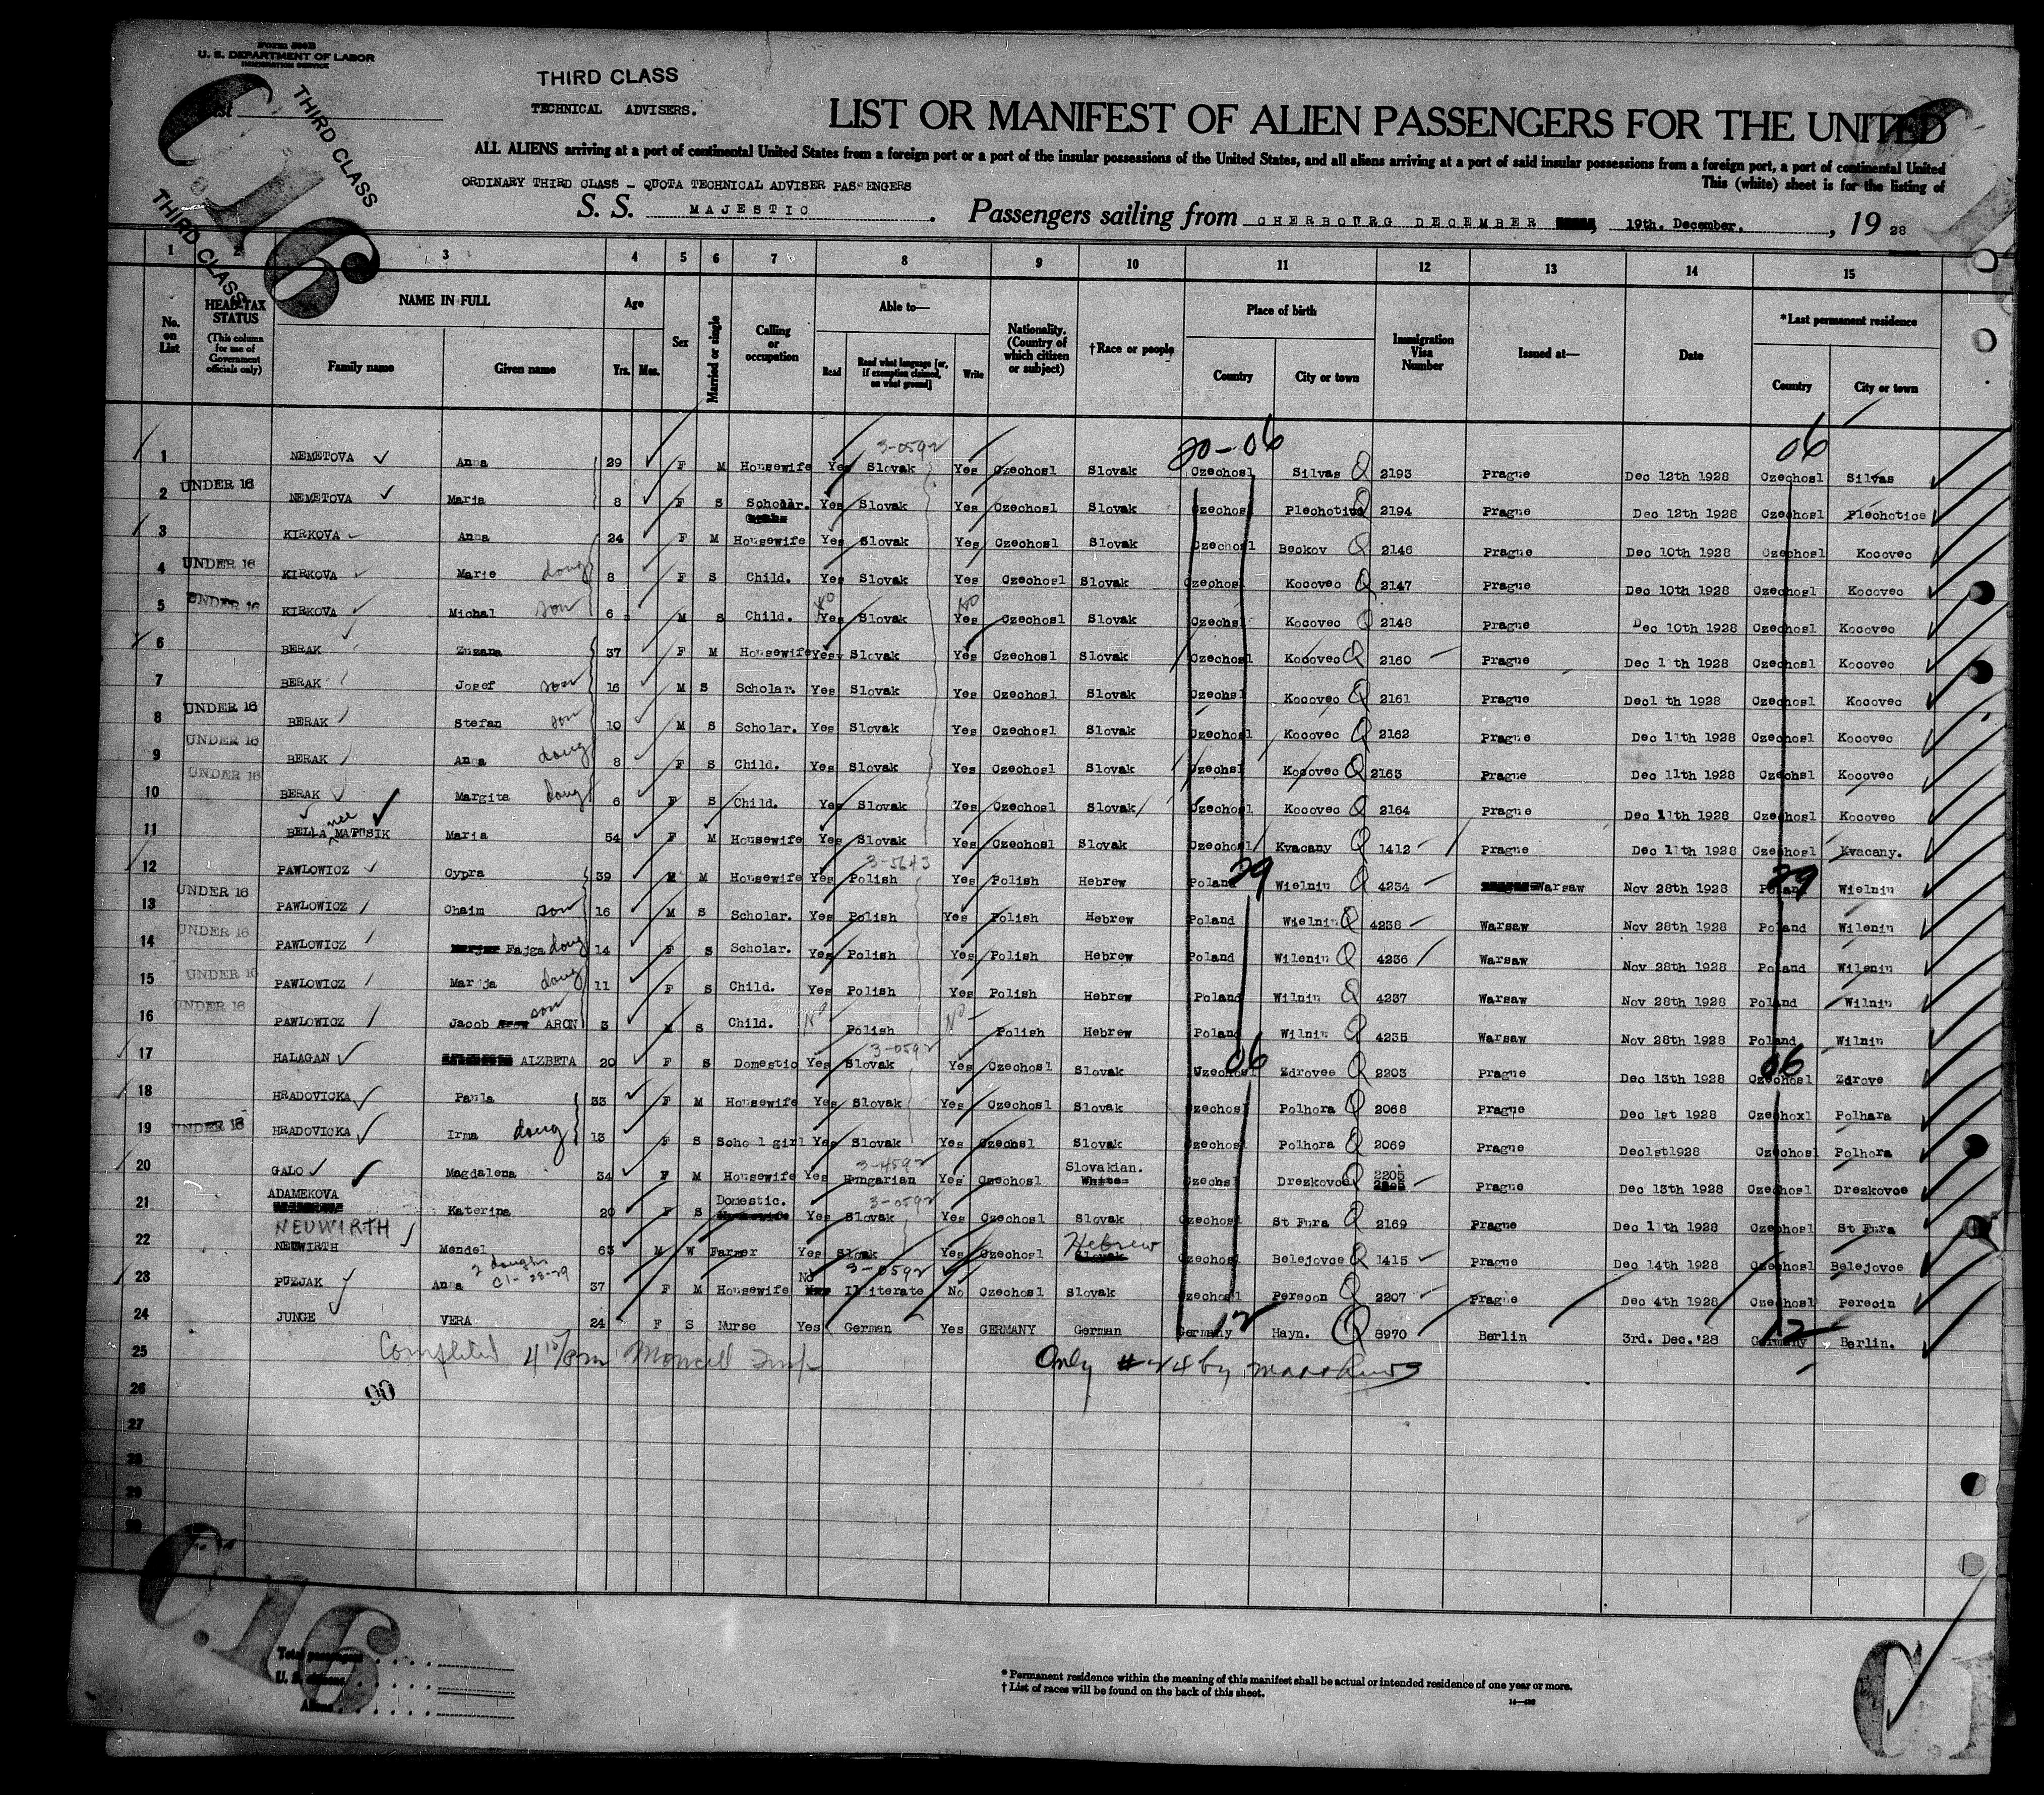 Form 500B
U. S. DEPARTMENT OF LABOR
IMMIGRATION SERVICE
THIRD CLASS
TECHNICAL ADVISERS.
THIRD CLASS
THIRD CLASS
C.16
LIST OR MANIFEST OF ALIEN PASSENGERS FOR THE UNITED
ALL ALIENS arriving at a port of continental United States from a foreign port or a port of the insular possessions of the United States, and all aliens arriving at a port of said insular possessions from a foreign port, a port of continental United
ORDINARY THIRD CLASS - QUOTA TECHNICAL ADVISER PASSENGERS
This (white) sheet is for the listing of
S. S. MAJESTIC. Passengers sailing from CHERBOURG DECEMBER, 19th. December., 19 28
1 2 3 4 5 6 7 8 9 10 11 12 13 14 15
No. on List
HEAD-TAX STATUS
(This column for use of Government officials only)
NAME IN FULL
Family name Given name
Age
Yrs. Mos.
Sex
Married or single
Calling or occupation
Able to—
Read
Read what language [or, if exemption claimed, on what ground]
Write
Nationality. (Country of which citizen or subject)
†Race or people
Place of birth
Country City or town
Immigration Visa Number
Issued at—
Date
*Last permanent residence
Country City or town
3-0592 20-06 06
1 NEMETOVA Anna 29 F M Housewife Yes Slovak Yes Czechosl Slovak Czechosl Silvas Q 2193 Prague Dec 12th 1928 Czechosl Silvas
2 UNDER 16 NEMETOVA Maria 8 F S Scholar. Yes Slovak Yes Czechosl Slovak Czechosl Plechotice Q 2194 Prague Dec 12th 1928 Czechosl Plechotice
3 KIRKOVA Anna 24 F M Housewife Yes Slovak Yes Czechosl Slovak Czechosl Beckov Q 2146 Prague Dec 10th 1928 Czechosl Kocovec
4 UNDER 16 KIRKOVA Marie daug 8 F S Child. Yes Slovak Yes Czechosl Slovak Czechosl Kocovec Q 2147 Prague Dec 10th 1928 Czechosl Kocovec
5 UNDER 16 KIRKOVA Michal son 6 M S Child. No Yes Slovak No Yes Czechosl Slovak Czechsl Kocovec Q 2148 Prague Dec 10th 1928 Czechosl Kocovec
6 BERAK Zuzana 37 F M Housewife Yes Slovak Yes Czechosl Slovak Czechosl Kocovec Q 2160 Prague Dec 1 th 1928 Czechosl Kocovec
7 BERAK Josef son 16 M S Scholar. Yes Slovak Yes Czechosl Slovak Czechsl Kocovec Q 2161 Prague Dec1 th 1928 Czechosl Kocovec
8 UNDER 16 BERAK Stefan son 10 M S Scholar. Yes Slovak Yes Czechosl Slovak Czechosl Kocovec Q 2162 Prague Dec 11th 1928 Czechosl Kocovec
9 UNDER 16 BERAK Anna daug 8 F S Child. Yes Slovak Yes Czechosl Slovak Czechsl Kocovec Q 2163 Prague Dec 11th 1928 Czechsl Kocovec
10 UNDER 16 BERAK Margita daug 6 F S Child. Yes Slovak Yes Czechosl Slovak Czechosl Kocovec Q 2164 Prague Dec 11th 1928 Czechosl Kocovec
11 BELLA nee MATUSIK Maria 54 F M Housewife Yes Slovak Yes Czechosl Slovak Czechosl Kvacany Q 1412 Prague Dec 11th 1928 Czechosl Kvacany.
3-5643 29 29
12 PAWLOWICZ Cypra 39 M M Housewife Yes Polish Yes Polish Hebrew Poland Wielnin Q 4234 Warsaw Nov 28th 1928 Poland Wielnin
13 UNDER 16 PAWLOWICZ Chaim son 16 M S Scholar. Yes Polish Yes Polish Hebrew Poland Wielnin Q 4238 Warsaw Nov 28th 1928 Poland Wilenin
14 UNDER 16 PAWLOWICZ Fajga daug 14 F S Scholar. Yes Polish Yes Polish Hebrew Poland Wilenin Q 4236 Warsaw Nov 28th 1928 Poland Wilenin
15 UNDER 16 PAWLOWICZ Marija daug 11 F S Child. Yes Polish Yes Polish Hebrew Poland Wilnin Q 4237 Warsaw Nov 28th 1928 Poland Wilnin
16 UNDER 16 PAWLOWICZ Jacob ARON son 3 M S Child. No Polish No Polish Hebrew Poland Wilnin Q 4235 Warsaw Nov 28th 1928 Poland Wilnin
3-0592 06 06
17 HALAGAN ALZBETA 20 F S Domestic Yes Slovak Yes Czechosl Slovak Czechosl Zdrovee Q 2203 Prague Dec 13th 1928 Czechosl Zdrove
18 HRADOVICKA Paula 33 F M Housewife Yes Slovak Yes Czechosl Slovak Czechosl Polhora Q 2068 Prague Dec 1st 1928 Czechoxl Polhara
19 UNDER 16 HRADOVICKA Irma daug 13 F S School girl Yes Slovak Yes Czechsl Slovak Czechosl Polhora Q 2069 Prague Dec1st1928 Czechosl Polhora
20 GALO Magdalena 34 F M Housewife Yes 3-4592 Hungarian Yes Czechosl Slovakian. Czechsl Drezkovce Q 2205 Prague Dec 13th 1928 Czechosl Drezkovce
21 ADAMEKOVA Katerina 20 F S Domestic. Yes 3-0592 Slovak Yes Czechosl Slovak Czechosl St Fura Q 2169 Prague Dec 11th 1928 Czechosl St Fura
NEUWIRTH
22 NEUWIRTH Mendel 63 M W Farmer Yes Slovak Yes Czechosl Hebrew Czechosl Belejovce Q 1415 Prague Dec 14th 1928 Czechosl Belejovce
2 daughs C1-23-29
23 PUZJAK Anna 37 F M Housewife No 3-0592 Illiterate No Czechosl Slovak Czechosl Perecon Q 2207 Prague Dec 4th 1928 Czechosl Perecin
24 JUNGE VERA 24 F S Nurse Yes German Yes GERMANY German Germany 12 Hayn. Q 8970 Berlin 3rd. Dec.'28 Germany 12 Berlin.
25 Completed 4 15/pm Only # 24 by
26 90
27
28
29
30
C.16
Total passengers
U. S. citizens
Aliens
* Permanent residence within the meaning of this manifest shall be actual or intended residence of one year or more.
† List of races will be found on the back of this sheet.
C.1